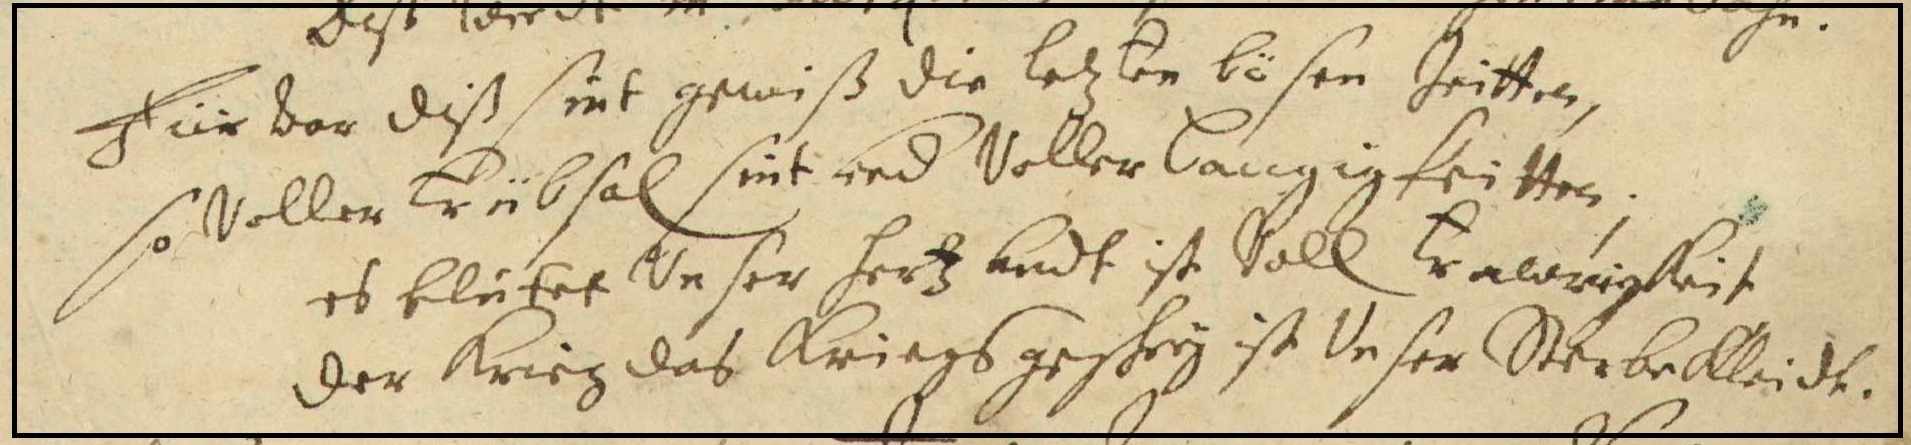 Für war diß sint gewiß die letzten bösen Zeitten,
so Voller Trübsal sint und Voller Bangigkeitten,
es blütet Unser hertz undt ist Voll Trawrigkeit
der Krieg das Kriegs geschrey ist Unser Sterbe Kleidt.